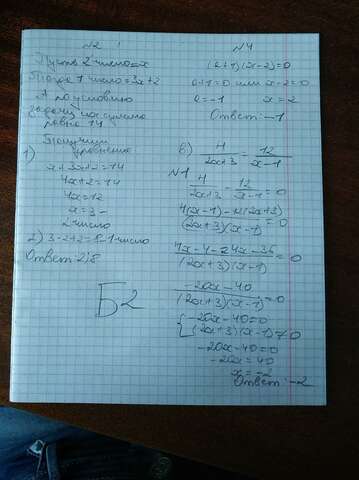 N2
Пусть 2 число = x
Тогда 1 число = 3x+2
А по условию
задачи их сумма
равна 14
Получим
уравнение
1)
x+3x+2=14
4x+2=14
4x=12
x=3 -
2 число
2) 3·2+2=8-1 число
Ответ: 2;8
Б2
N4
(x+1)(x-2)=0
x+1=0 или x-2=0
x=-1 x=2
Ответ: -1
в) 4/2x+3 = 12/x-1
N1 4/2x+3 - 12/x-1 = 0
4(x-1)-12(2x+3)/(2x+3)(x-1) = 0
4x-4-24x-36/(2x+3)(x-1) = 0
-20x-40/(2x+3)(x-1) = 0
{-20x-40=0
(2x+3)(x-1)≠0
-20x-40=0
-20x=40
x=-2
Ответ: -2